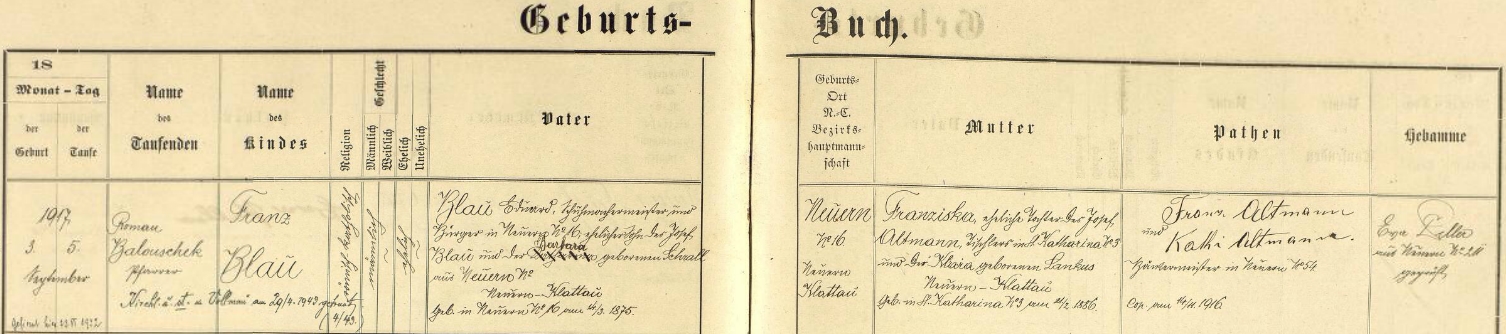 Geburts- Buch.
18
Monat - Tag
der Geburt
der Taufe
Name des Taufenden
Name des Kindes
Religion
Geschlecht
Männlich
Weiblich
Ehelich
Unehelich
Vater
Geburts-
Ort
N.-C.
Bezirks-
hauptmann-
schaft
Mutter
Pathen
Hebamme
1917
3. 5.
September
Roman
Balouschek
Pfarrer
Franz
Blau
Blau Eduard, Schuhmachermeister und
Bürger in Neuern Nº 16, ehelicher Sohn des Josef
Blau und der Barbara geborenen
aus Neuern Nº
Neuern - Klattau
geb. in Neuern Nº 16, am 1875.
Neuern
Nº 16.
Neuern
Klattau
Franziska, eheliche Tochter des Josef
Altmann, Tischlers in St. Katharina Nº 3
und der Maria geborenen Lankus
Neuern - Klattau
Geb. in St. Katharina Nº 3 am 1886.
Franz Altmann
und
Kathi Altmann.
in Neuern Nº 54
Cop. am 1916.
Eva
aus Neuern Nº
geprüft
Kirchl. am 29/4. 1943 getraut
(4/43)
1932